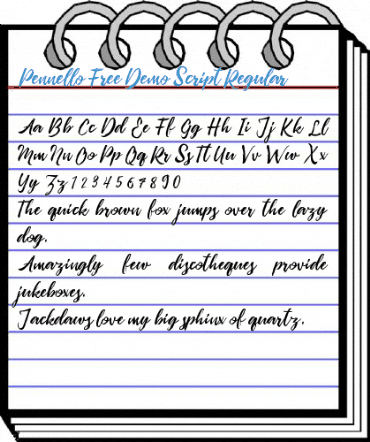 Pennello Free Demo Script Regular
Aa Bb Cc Dd Ee Ff Gg Hh Ii Jj Kk Ll
Mm Nn Oo Pp Qq Rr Ss Tt Uu Vv Ww Xx
Yy Zz 1 2 3 4 5 6 7 8 9 0
The quick brown fox jumps over the lazy
dog.
Amazingly few discotheques provide
jukeboxes.
Jackdaws love my big sphinx of quartz.